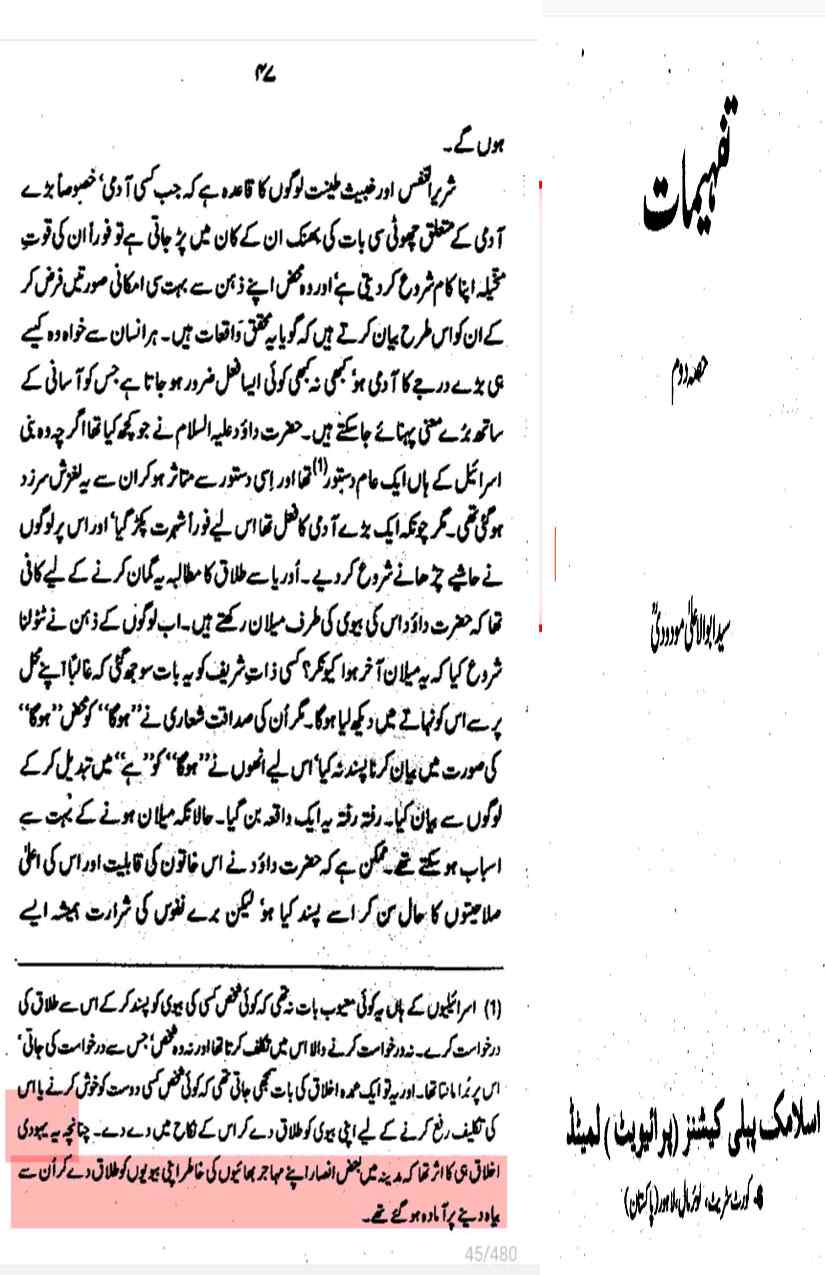 ۴۷
ہوں گے۔
شریر النفس اور خبیث طینت لوگوں کا قاعدہ ہے کہ جب کسی آدمی‘ خصوصاً بڑے
آدمی کے متعلق چھوٹی سی بات کی بھنک ان کے کان میں پڑ جاتی ہے تو فوراً ان کی قوتِ
متخیلہ اپنا کام شروع کر دیتی ہے‘ اور وہ محض اپنے ذہن سے بہت سی امکانی صورتیں فرض کر
کے ان کو اس طرح بیان کرتے ہیں کہ گویا یہ محقق واقعات ہیں۔ ہر انسان سے خواہ وہ کیسے
ہی بڑے درجے کا آدمی ہو‘ کبھی نہ کبھی کوئی ایسا فعل ضرور ہو جاتا ہے جس کو آسانی کے
ساتھ بڑے معنی پہنائے جا سکتے ہیں۔ حضرت داؤد علیہ السلام نے جو کچھ کیا تھا اگرچہ وہ بنی
اسرائیل کے ہاں ایک عام دستور(1) تھا اور اسی دستور سے متاثر ہو کر ان سے یہ لغزش سرزد
ہو گئی تھی۔ مگر چونکہ ایک بڑے آدمی کا فعل تھا اس لیے فوراً شہرت پکڑ گیا‘ اور اس پر لوگوں
نے حاشیے چڑھانے شروع کر دیے۔ اُوریا سے طلاق کا مطالبہ یہ گمان کرنے کے لیے کافی
تھا کہ حضرت داؤد اس کی بیوی کی طرف میلان رکھتے ہیں۔ اب لوگوں کے ذہن نے ٹٹولنا
شروع کیا کہ یہ میلان آخر ہوا کیونکر؟ کسی ذاتِ شریف کو یہ بات سوجھ گئی کہ غالباً اپنے محل
پر سے اس کو نہاتے میں دیکھ لیا ہو گا۔ مگر اُن کی صداقت شعاری نے ”ہوگا“ کو محض ”ہوگا“
کی صورت میں بیان کرنا پسند نہ کیا‘ اس لیے انھوں نے ”ہوگا“ کو ”ہے“ میں تبدیل کر کے
لوگوں سے بیان کیا۔ رفتہ رفتہ یہ ایک واقعہ بن گیا۔ حالانکہ میلان ہونے کے بہت سے
اسباب ہو سکتے تھے۔ ممکن ہے کہ حضرت داؤد نے اس خاتون کی قابلیت اور اس کی اعلیٰ
صلاحیتوں کا حال سن کر اسے پسند کیا ہو‘ لیکن برے نفوس کی شرارت ہمیشہ ایسے
(1) اسرائیلیوں کے ہاں یہ کوئی معیوب بات نہ تھی کہ کوئی شخص کسی کی بیوی کو پسند کر کے اس سے طلاق کی
درخواست کرے۔ نہ درخواست کرنے والا اس میں تکلف کرتا تھا اور نہ وہ شخص‘ جس سے درخواست کی جاتی‘
اس پر بُرا مانتا تھا۔ اور یہ تو ایک عمدہ اخلاق کی بات سمجھی جاتی تھی کہ کوئی شخص کسی دوست کو خوش کرنے یا اس
کی تکلیف رفع کرنے کے لیے اپنی بیوی کو طلاق دے کر اس کے نکاح میں دے دے۔ چنانچہ یہ یہودی
اخلاق ہی کا اثر تھا کہ مدینہ میں بعض انصار اپنے مہاجر بھائیوں کی خاطر اپنی بیویوں کو طلاق دے کر اُن سے
بیاہ دینے پر آمادہ ہو گئے تھے۔
45/480
تفہیمات
حصہ دوم
سید ابوالاعلیٰ مودودیؒ
اسلامک پبلی کیشنز (پرائیویٹ) لمیٹڈ
کورٹ سٹریٹ، لوئر مال، لاہور (پاکستان)